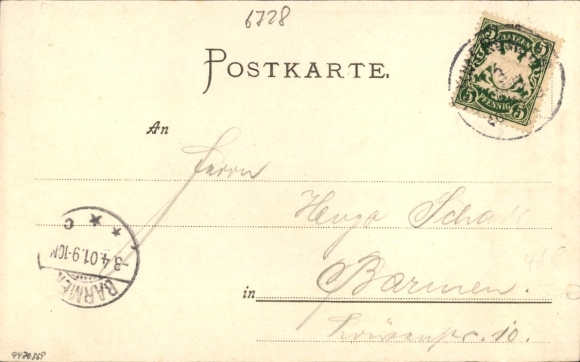 6728
POSTKARTE.
BAYERN
5 5
5 PFENNIG 5
An
Herrn
Hugo
* * C
3 4.01.9-10N
BARMEN
in Barmen.
10.
9420368